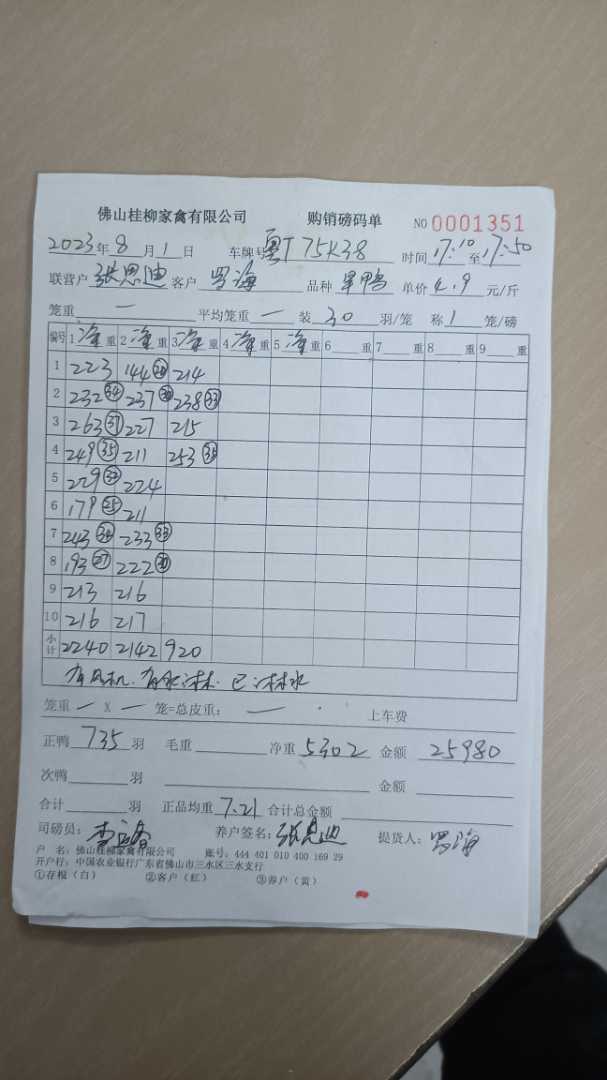 佛山桂柳家禽有限公司 购销磅码单 NO 0001351
2023年8月1日 车牌号粤T75K38 时间17:10至17:50
联营户张思迪 客户罗海 品种旱鸭 单价4.9元/斤
笼重一 平均笼重一 装30羽/笼 称1笼/磅
编号 1净重 2净重 3净重 4净重 5净重 6重 7重 8重 9重
1 223 144 214
2 232 34 237 238 33
3 263 37 227 215
4 249 35 211 253
5 229 224
6 179 25 211
7 243 233 33
8 193 27 222
9 213 216
10 216 217
小计 2240 2142 920
有风机.有水淋.已淋水
笼重一X一笼=总皮重:一 上车费
正鸭735羽 毛重 净重5302 金额25980
次鸭 羽 金额
合计 羽 正品均重7.21 合计总金额
司磅员: 养户签名:张思迪 提货人:罗海
户 名:佛山桂柳家禽有限公司 账号:444 401 010 400 169 29
开户行:中国农业银行广东省佛山市三水区三水支行
①存根(白) ②客户(红) ③养户(黄)